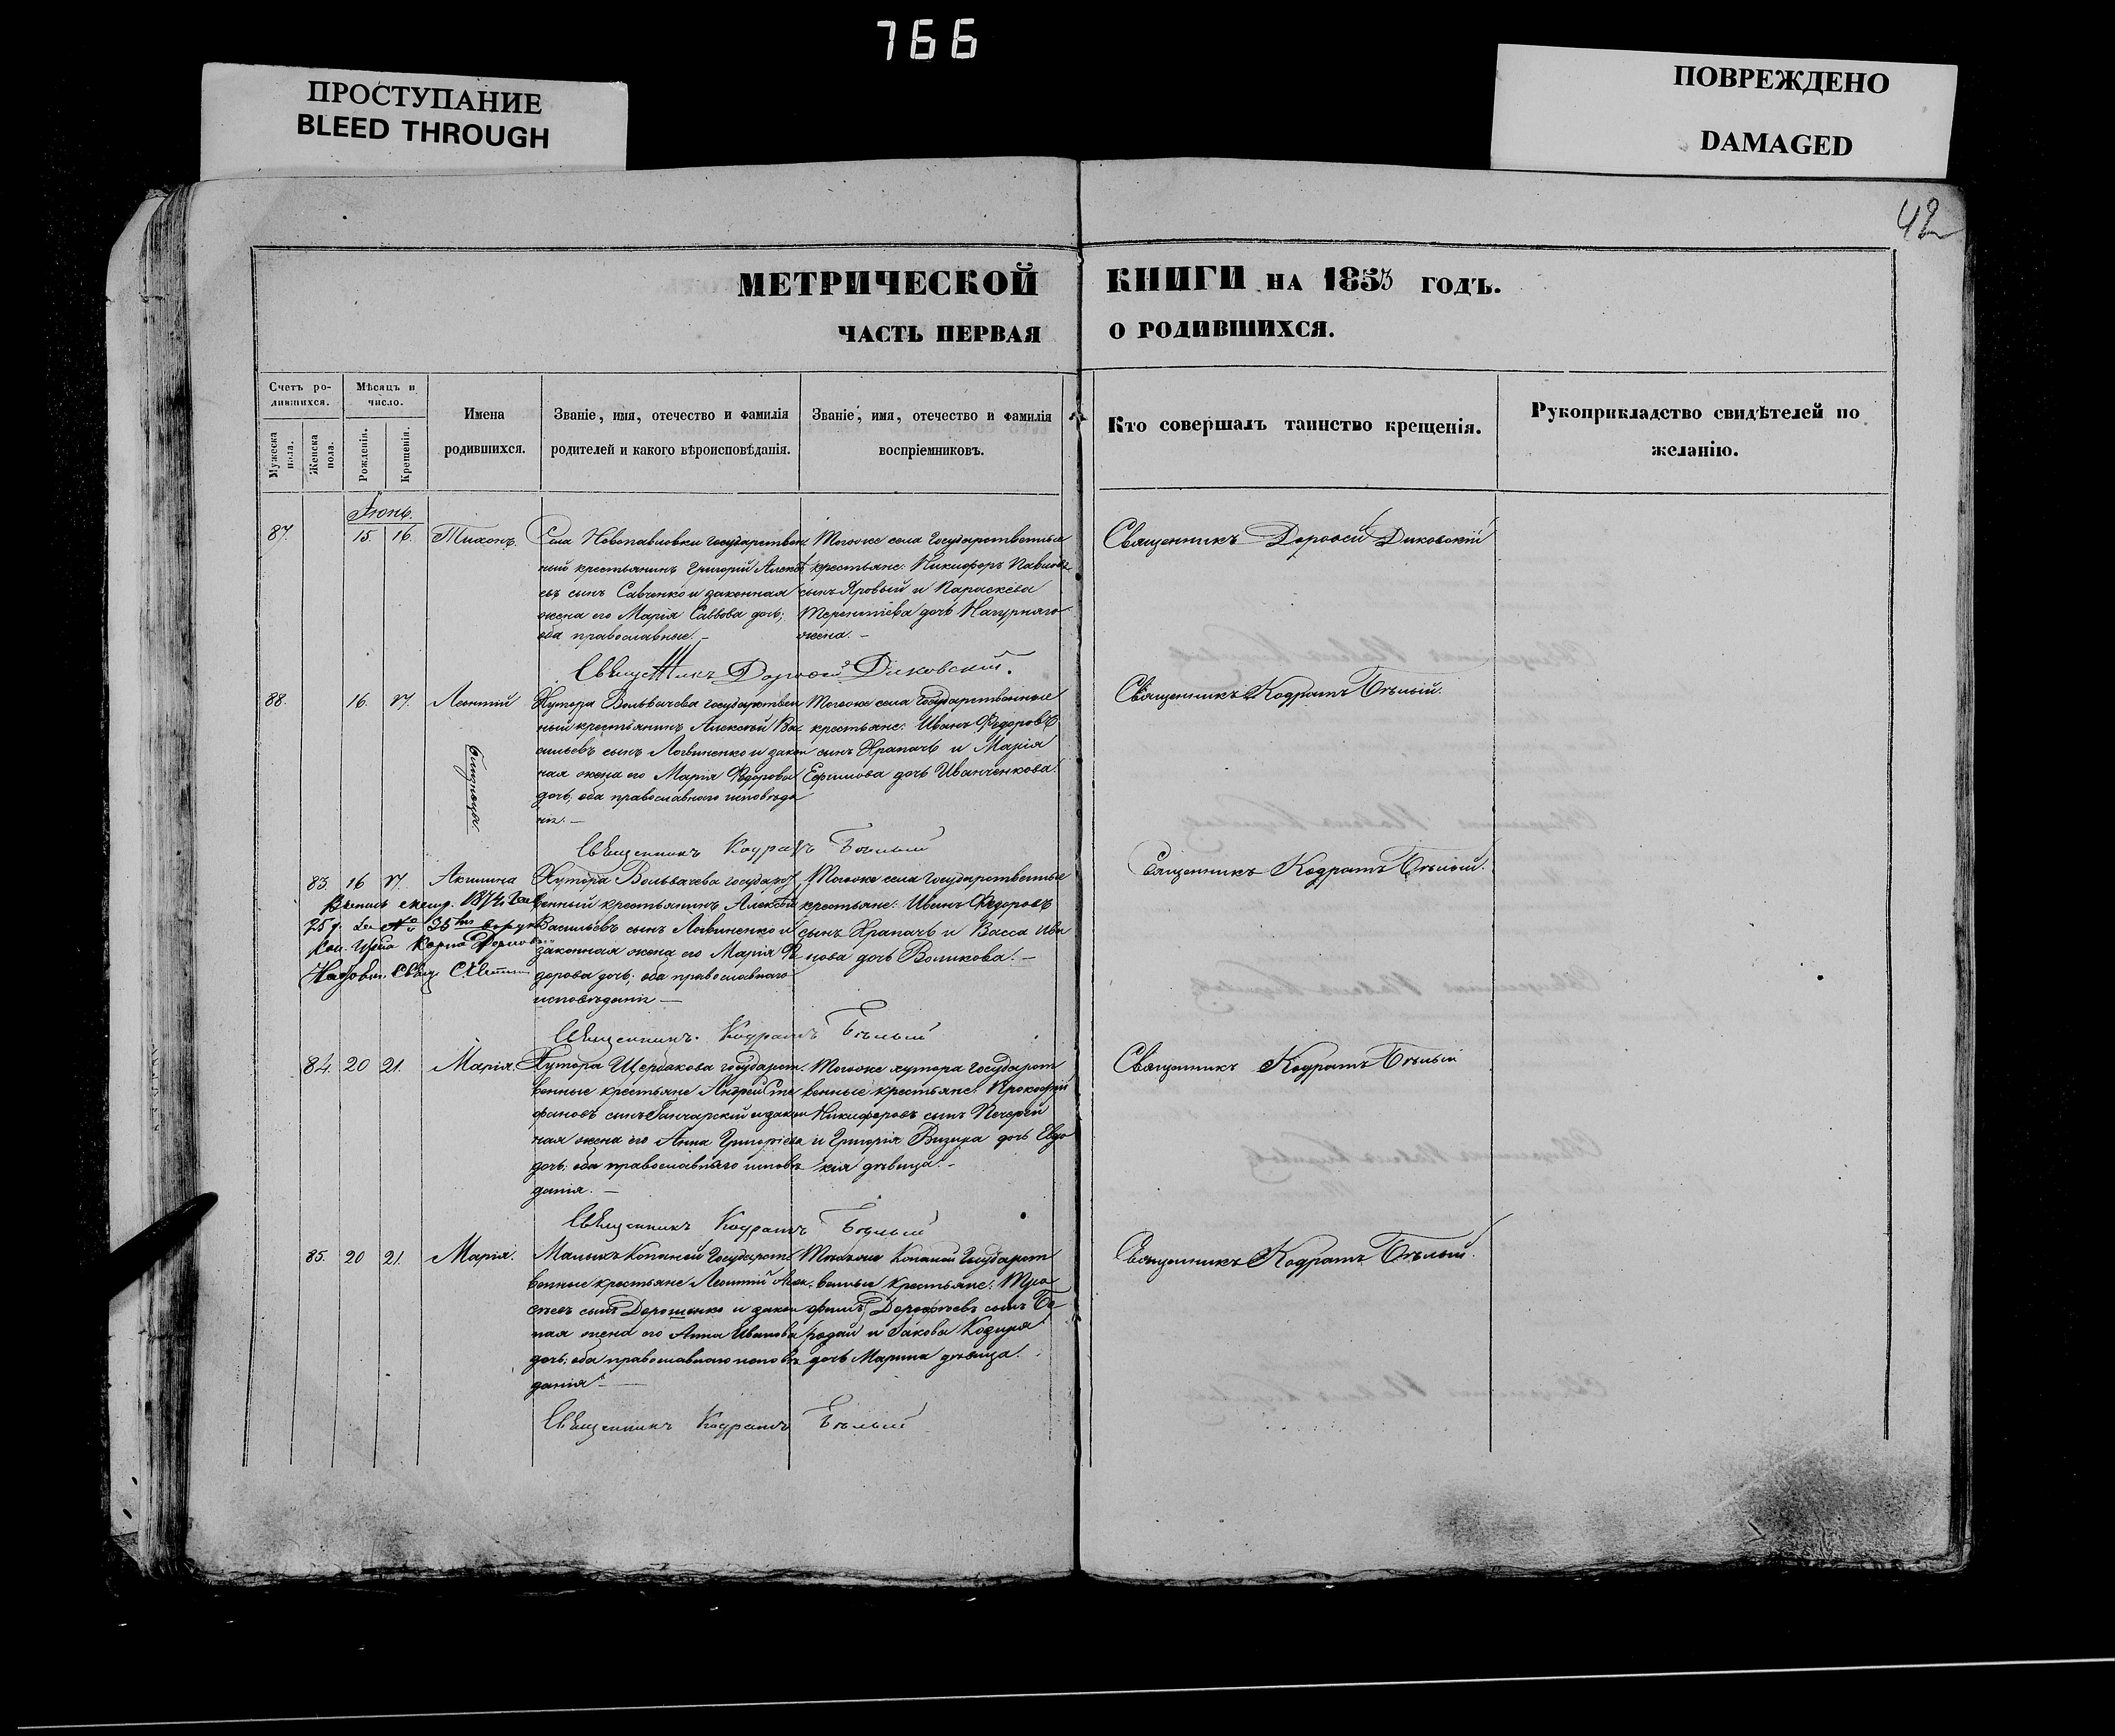 766
ПРОСТУПАНИЕ
BLEED THROUGH
ПОВРЕЖДЕНО
DAMAGED
42
МЕТРИЧЕСКОЙ КНИГИ НА 1853 ГОДЪ.
ЧАСТЬ ПЕРВАЯ О РОДИВШИХСЯ.
Счетъ ро-
дившихся.
Мужеска пола.
Женска пола.
Мѣсяцъ и
число.
Рожденія.
Крещенія.
Имена
родившихся.
Званіе, имя, отечество и фамилія
родителей и какого вѣроисповѣданія.
Званіе, имя, отечество и фамилія
воспріемниковъ.
Кто совершалъ таинство крещенія.
Рукоприкладство свидѣтелей по
желанію.
Іюнь.
87. 15. 16. Тихонъ.
Села Новопавловки государствен
ный крестьянинъ Григорій Алексѣ
евъ сынъ Савченко и законная
жена его Марія Саввова дочь;
оба православные. –
Тогоже села Государственные
крестьяне: Никифоръ Павловъ
сынъ Яровый и Параскева
Терентіева дочь Нагурнаго
жена. –
Священникъ Дорофей Диковскій
Священникъ Дорофей Диковскій.
88. 16. 17. Леонтій
Близнецы
Хутора Вольвачева государствен
ный крестьянинъ Алексѣй Ва
сильевъ сынъ Логвиненко и закон
ная жена его Марія Федорова
дочь, оба православнаго исповѣда
нія. –
Тогоже села Государственные
крестьяне: Иванъ Федоровъ
сынъ Храпачь и Марія
Ефимова дочь Иванченкова.
Священникъ Кодратъ Бѣлый.
Священникъ Кодратъ Бѣлый
83. 16 17. Акилина
Хутора Вольвачева государст
венный крестьянинъ Алексѣй
Васильевъ сынъ Логвиненко и
законная жена его Марія Фе
дорова дочь; оба православнаго
исповѣданія –
Тогоже села государственные
крестьяне: Иванъ Федоровъ
сынъ Храпачь и Васса Ива
нова дочь Воликова. –
Священникъ Кодратъ Бѣлый.
Священникъ Кодратъ Бѣлый
84. 20 21. Марія.
Хутора Щербакова государст
венные крестьяне Андрей Сте
фановъ сынъ Ганчарскій и закон
ная жена его Анна Григоріева
дочь; оба православнаго исповѣ
данія. –
Тогоже хутора государст
венные крестьяне: Прокофій
Никифоровъ сынъ Печерей
и Григорія Визира дочь Евдо
кія дѣвица. –
Священникъ Кодратъ Бѣлый
Священникъ Кодратъ Бѣлый
85. 20 21. Марія.
Малыхъ Копаней Государст
венные крестьяне Леонтій Алек
сѣевъ сынъ Дорошенко и закон
ная жена его Анна Иванова
дочь; оба православнаго исповѣ
данія –
Копаней Государст
венные крестьяне: Тро
фимъ Дорофѣевъ сынъ Бо
родай и Іакова Козиря
дочь Марина дѣвица.
Священникъ Кодратъ Бѣлый.
Священникъ Кодратъ Бѣлый